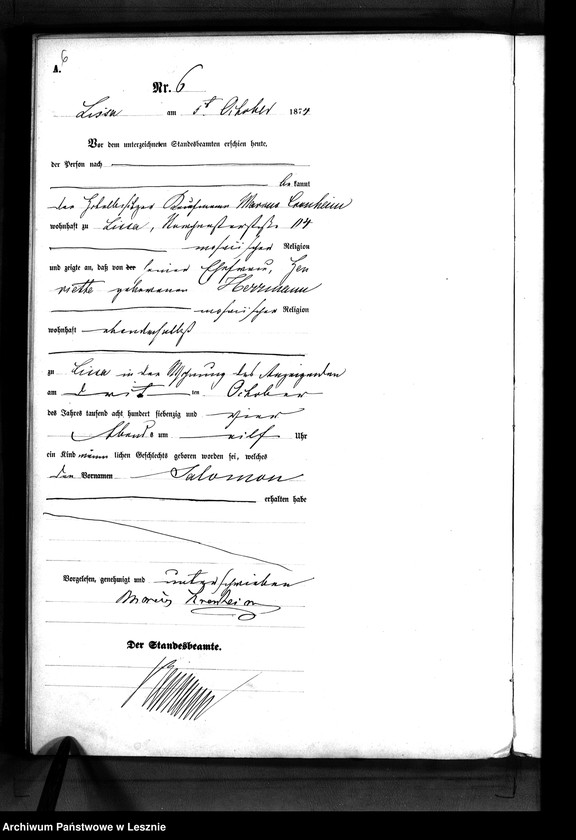 6
A.
Nr. 6
Lissa am 5t October 1874
Vor dem unterzeichneten Standesbeamten erschien heute,
der Person nach
be kannt
der Hotelbesitzer Kaufmann Marcus
wohnhaft zu Lissa, 114
mosaischer Religion
und zeigte an, daß von der seiner Ehefrau, Hen
riette geborenen Herrmann
mosaischer Religion
wohnhaft ebendaselbst
zu Lissa in der Wohnung des Anzeigenden
am drit ten October
des Jahres tausend acht hundert siebenzig und vier
Abends um eilf Uhr
ein Kind männ lichen Geschlechts geboren worden sei, welches
den Vornamen Salomon
erhalten habe
Vorgelesen, genehmigt und unterschrieben
Der Standesbeamte.
Archiwum Państwowe w Lesznie